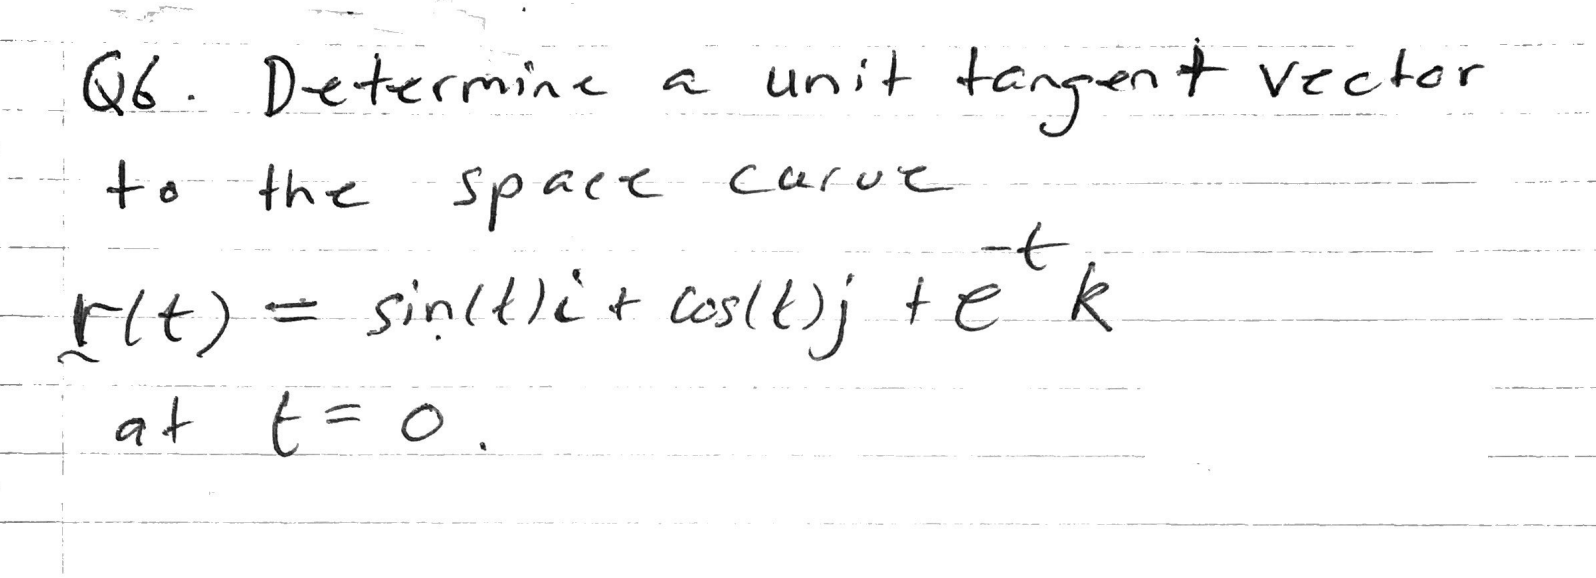 Q6. Determine a unit tangent vector
to the space curve
r(t) = sin(t)i + cos(t)j + e^{-t} k
at t = 0.